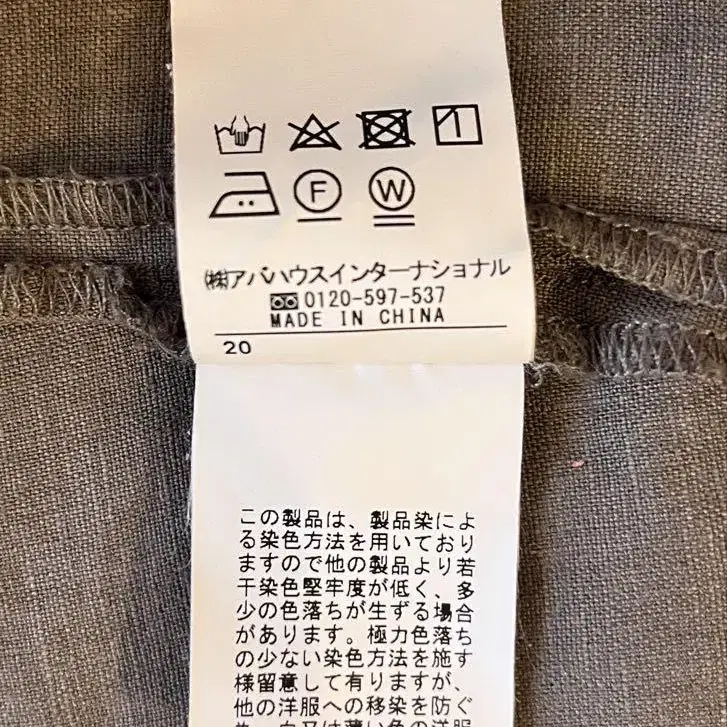 F W
㈱アバハウスインターナショナル
0120-597-537
MADE IN CHINA
20
この製品は、製品染によ
る染色方法を用いており
ますので他の製品より若
干染色堅牢度が低く、多
少の色落ちが生ずる場合
があります。極力色落ち
の少ない染色方法を施す
様留意して有りますが、
他の洋服への移染を防ぐ